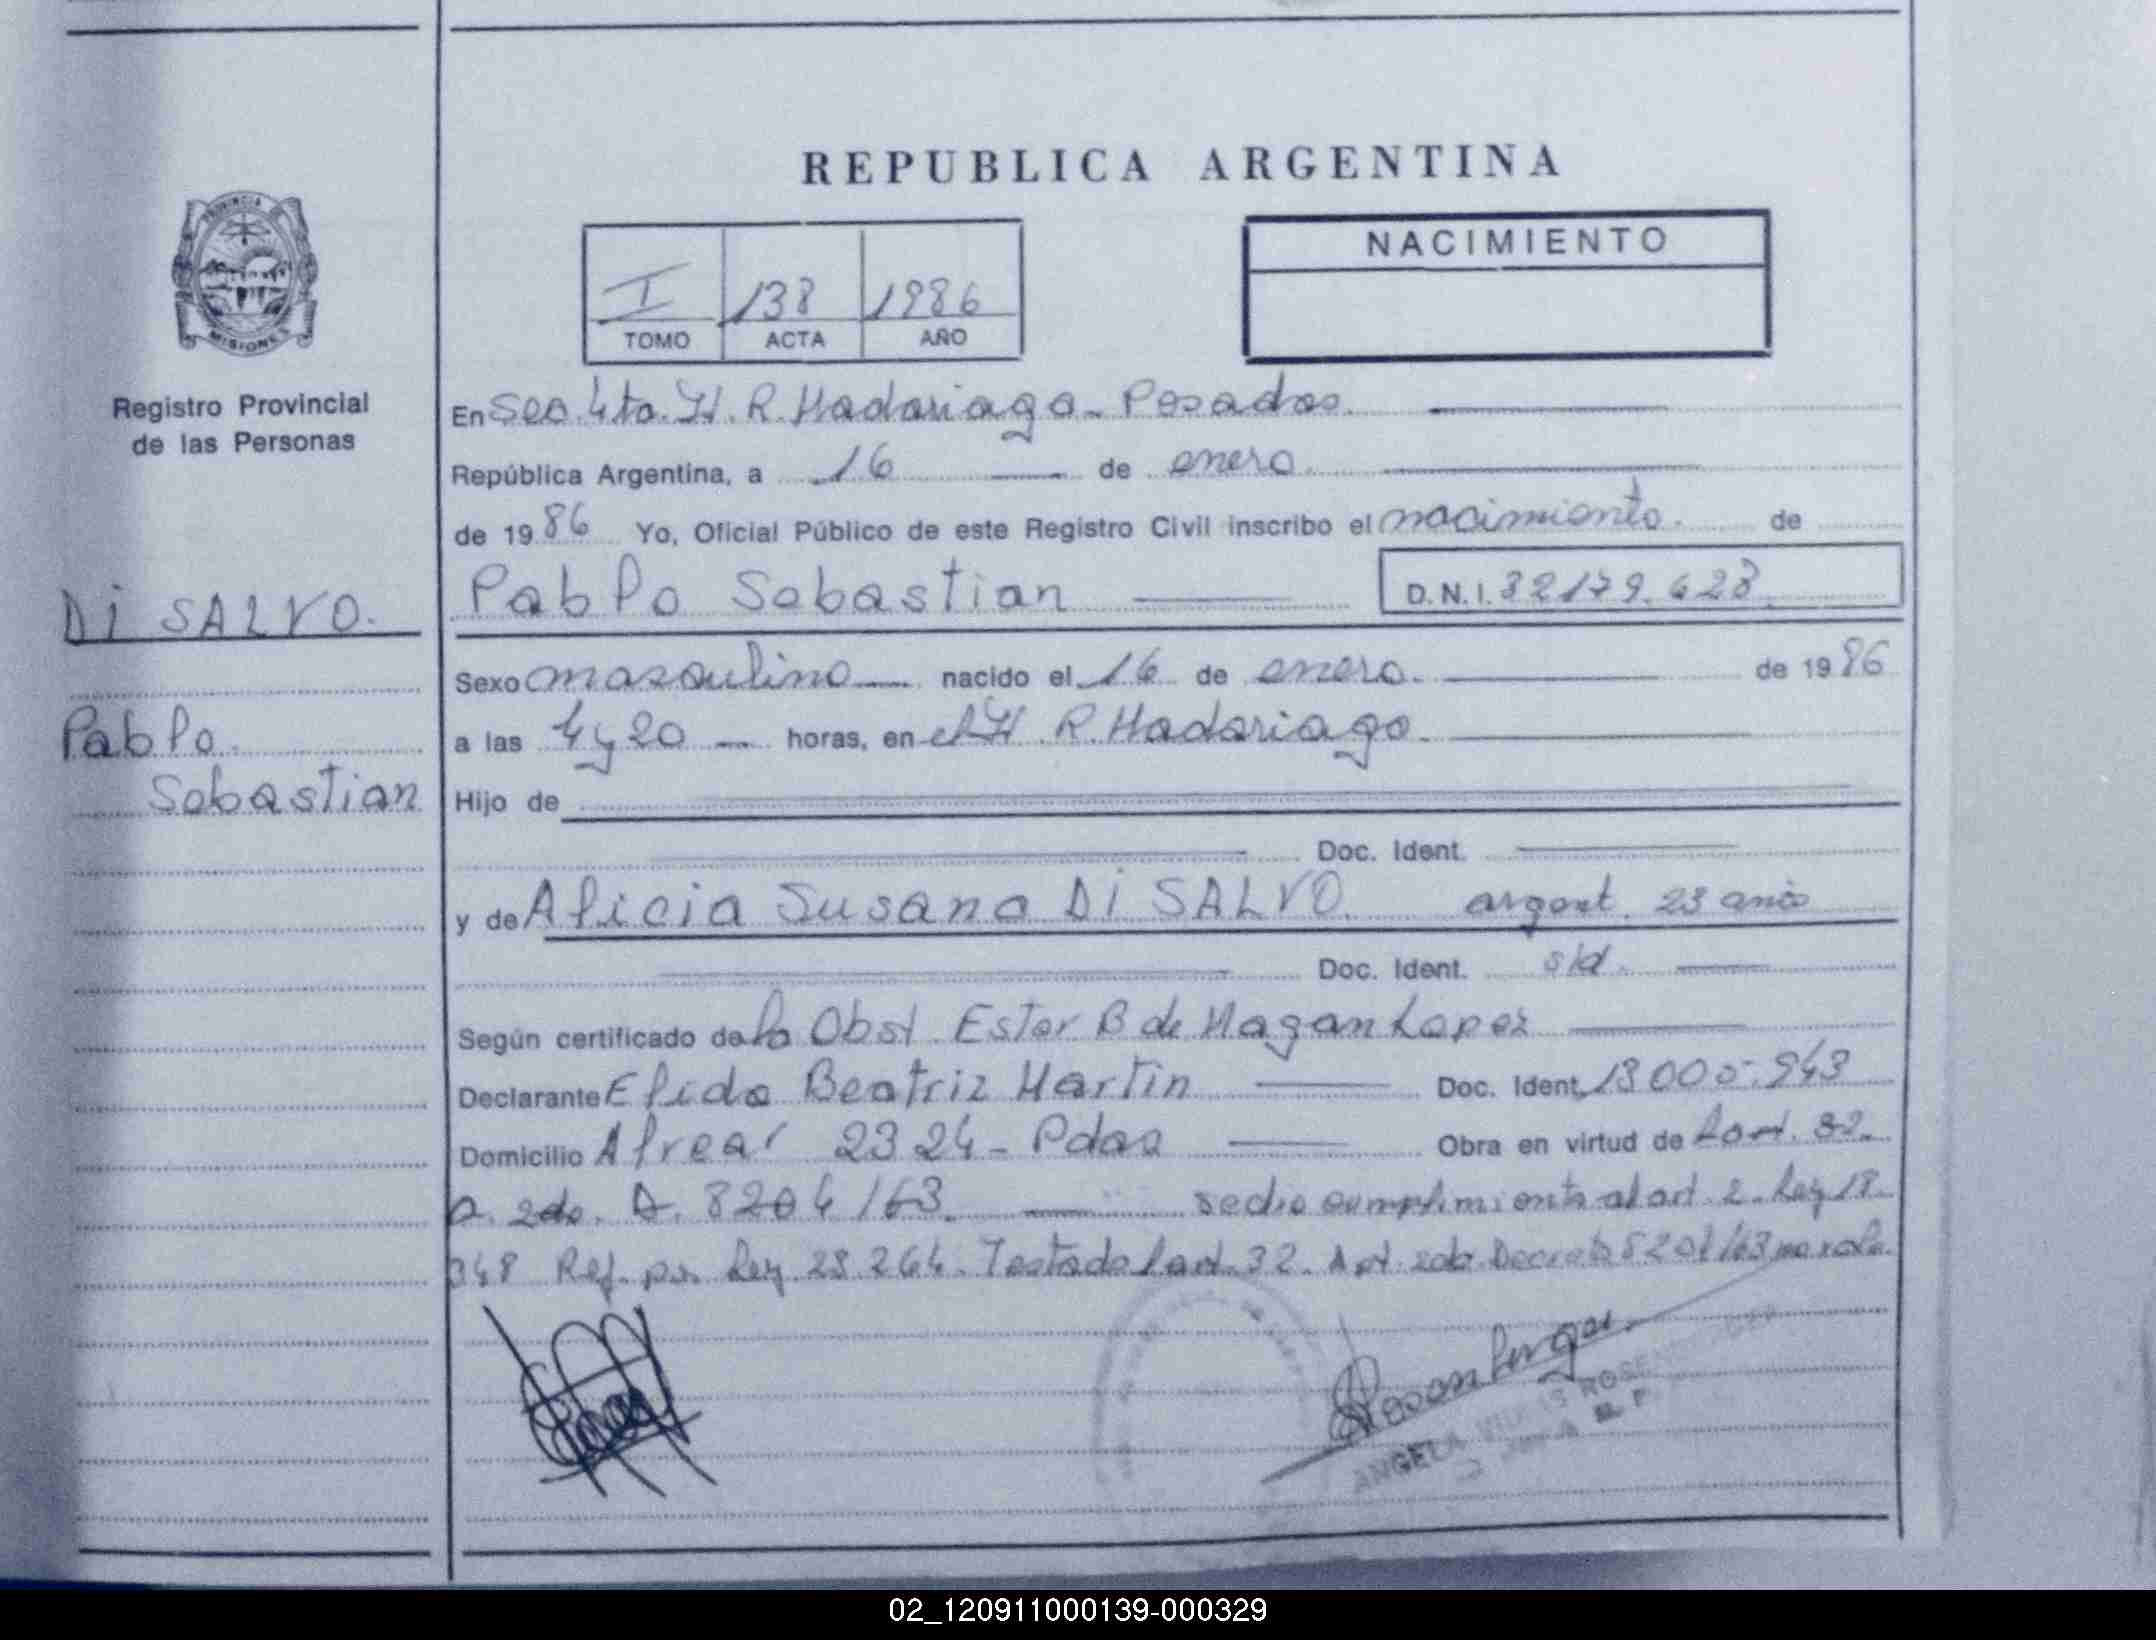 REPUBLICA ARGENTINA
PROVINCIA DE MISIONES
Registro Provincial
de las Personas
I 138 1986
TOMO ACTA AÑO
NACIMIENTO
En Sec 4ta. H. R. Madariaga - Posadas.
República Argentina, a 16 de enero
de 1986 Yo, Oficial Público de este Registro Civil inscribo el nacimiento de
Di SALVO.
Pablo Sebastian D.N.I. 32179.628
Sexo masculino nacido el 16 de enero. de 1986
Pablo
a las 4 y 20 horas, en el H R. Madariaga.
Sebastian
Hijo de
Doc. Ident.
y de Alicia Susana Di SALVO. argent. 23 años
Doc. Ident. s/d.
Según certificado de la Obst. Ester B de Magan Lopez
Declarante Elida Beatriz Martin Doc. Ident. 13 005.943
Domicilio Alvear 2324 - Pdas Obra en virtud de l art. 32.
a. 2do. D. 8204/63. se dio cumplimiento al art. 2. Ley 18.
248 Ref. por Ley 23.264. Testado l art. 32. Apt. 2do. Decreto 8204/63 no vale.
ANGELA
02_120911000139-000329